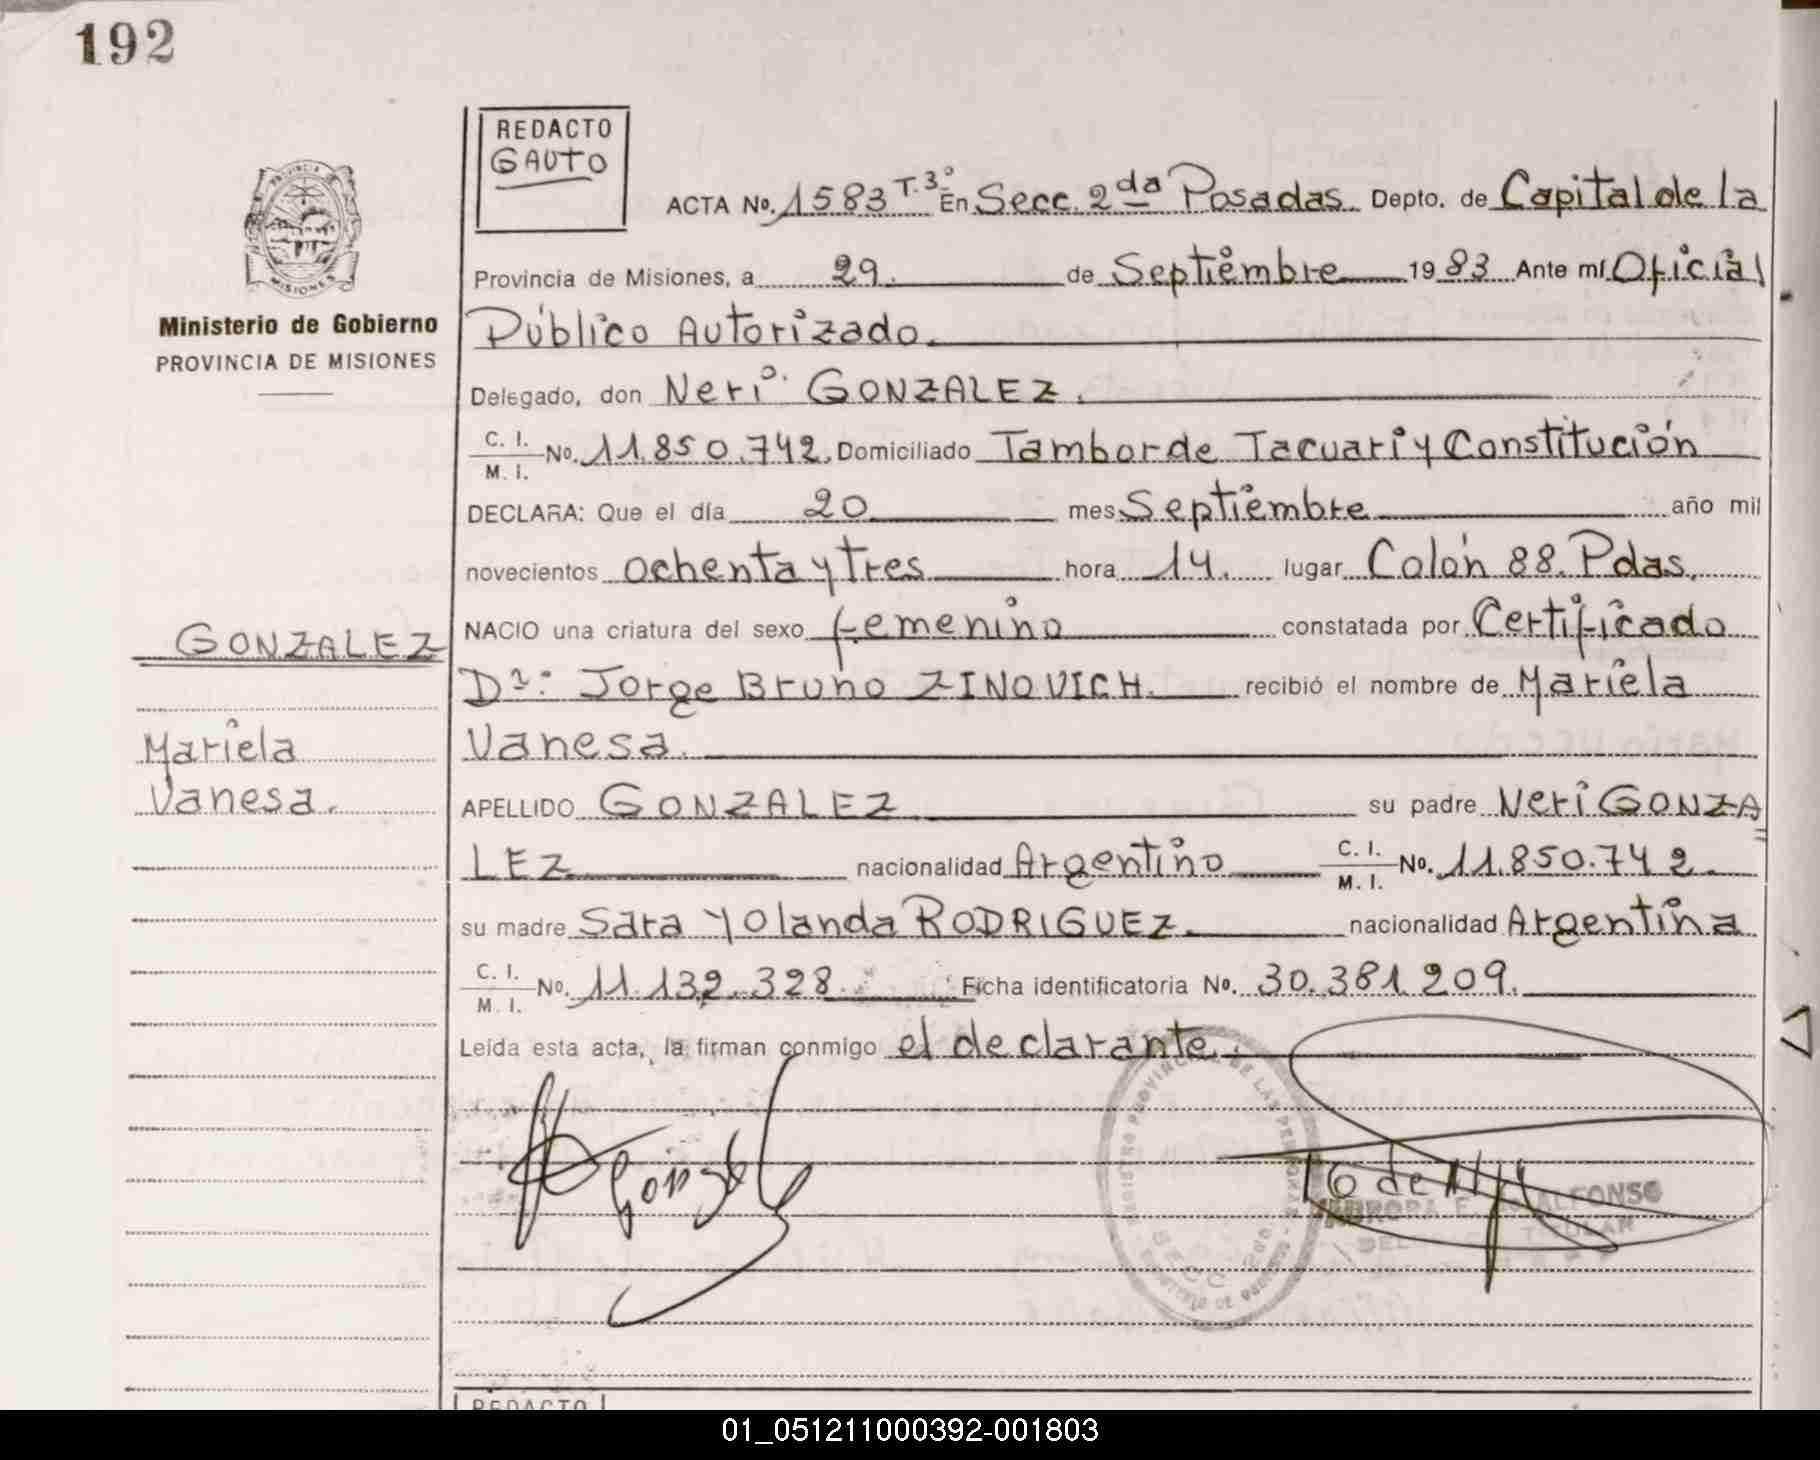 192
REDACTO
GAUTO
MISIONES
Ministerio de Gobierno
PROVINCIA DE MISIONES
ACTA No. 1583 T.3º En Secc. 2da Posadas. Depto. de Capital de la
Provincia de Misiones, a 29. de Septiembre 1983 Ante mí Oficial
Público Autorizado.
Delegado, don Neri GONZALEZ.
C. I.
M. I. No. 11.850.742. Domiciliado Tambor de Tacuari y Constitución
DECLARA: Que el día 20 mes Septiembre año mil
novecientos ochenta y tres hora 14. lugar Colón 88. Pdas.
NACIO una criatura del sexo femenino constatada por Certificado
Dr: Jorge Bruno ZINOVICH. recibió el nombre de Mariela
Vanesa.
APELLIDO GONZALEZ su padre Neri GONZA
LEZ nacionalidad Argentino C. I.
M. I. No. 11.850.742.
su madre Sara Yolanda RODRIGUEZ. nacionalidad Argentina
C. I.
M. I. No. 11.132.328. Ficha identificatoria No. 30.381.209.
Leída esta acta, la firman conmigo el declarante.
GONZALEZ
Mariela
Vanesa.
REGISTRO PROVINCIAL DE LAS PERSONAS
SECC. 2da.
ALFONSO
REDACTO
01_051211000392-001803